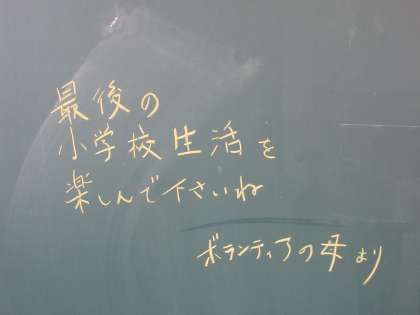 最後の
小学校生活を
楽しんで下さいね
ボランティアの母より